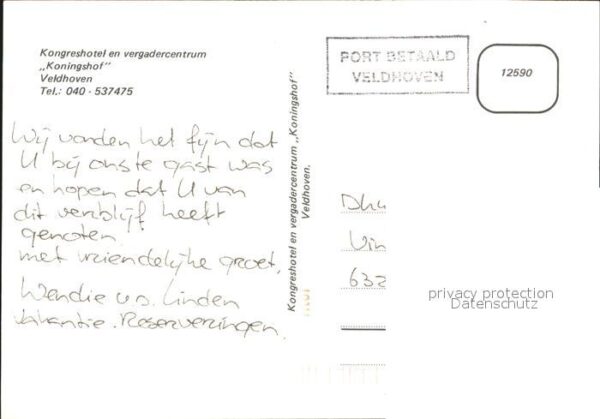 Kongreshotel en vergadercentrum
„Koningshof"
Veldhoven
Tel.: 040 - 537475
PORT BETAALD
VELDHOVEN
12590
Wij vonden het fijn dat
U bij ons te gast was
en hopen dat U van
dit verblijf heeft
genoten.
met vriendelijke groet,
Wendie v.d. Linden
vakantie. Reserveringen.
Kongreshotel en vergadercentrum „Koningshof"
Veldhoven.
Dhr
Vin
632
privacy protection
Datenschutz